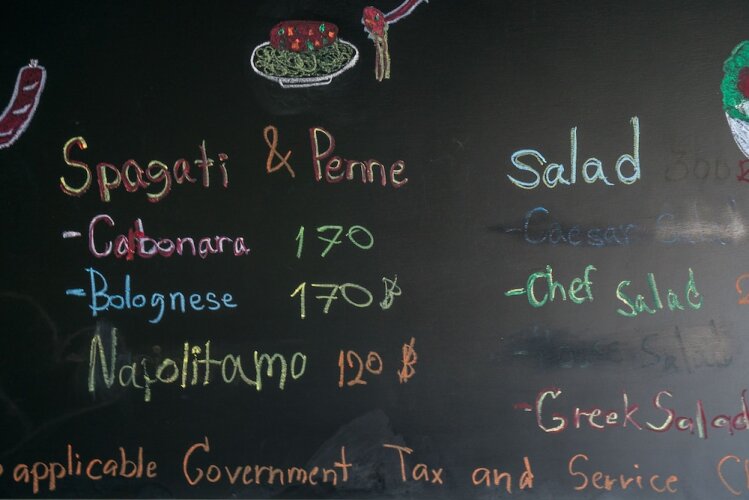 Spagati & Penne
-Carbonara 170
-Bolognese 170฿
Napolitamo 120 ฿
Salad
-Caesar Salad
-Chef Salad
Salad
-Greek Salad
applicable Government Tax and Service